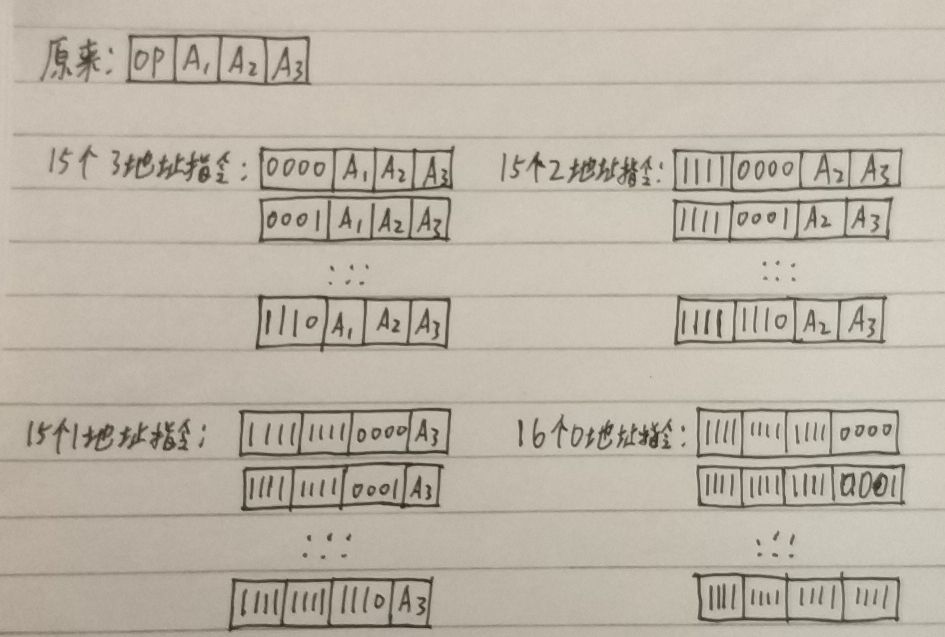 原来: OP A₁ A₂ A₃
15个3地址指令: 0000 A₁ A₂ A₃
0001 A₁ A₂ A₃
1110 A₁ A₂ A₃
15个2地址指令: 1111 0000 A₂ A₃
1111 0001 A₂ A₃
1111 1110 A₂ A₃
15个1地址指令: 1111 1111 0000 A₃
1111 1111 0001 A₃
1111 1111 1110 A₃
16个0地址指令: 1111 1111 1111 0000
1111 1111 1111 0001
1111 1111 1111 1111